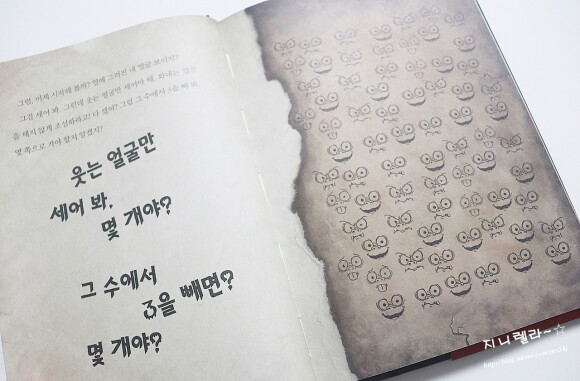 그럼, 이제 시작해 볼까? 옆에 그려진 내 얼굴 보이지?
그걸 세어 봐. 그런데 웃는 얼굴만 세어야 해. 화내는 얼굴
을 세지 않게 조심하라고! 다 셌어? 그럼 그 수에서 3을 빼 봐.
몇 쪽으로 가야 할지 알겠지?
웃는 얼굴만
세어 봐.
몇 개야?
그 수에서
3을 빼면?
몇 개야?
지니렐라~☆